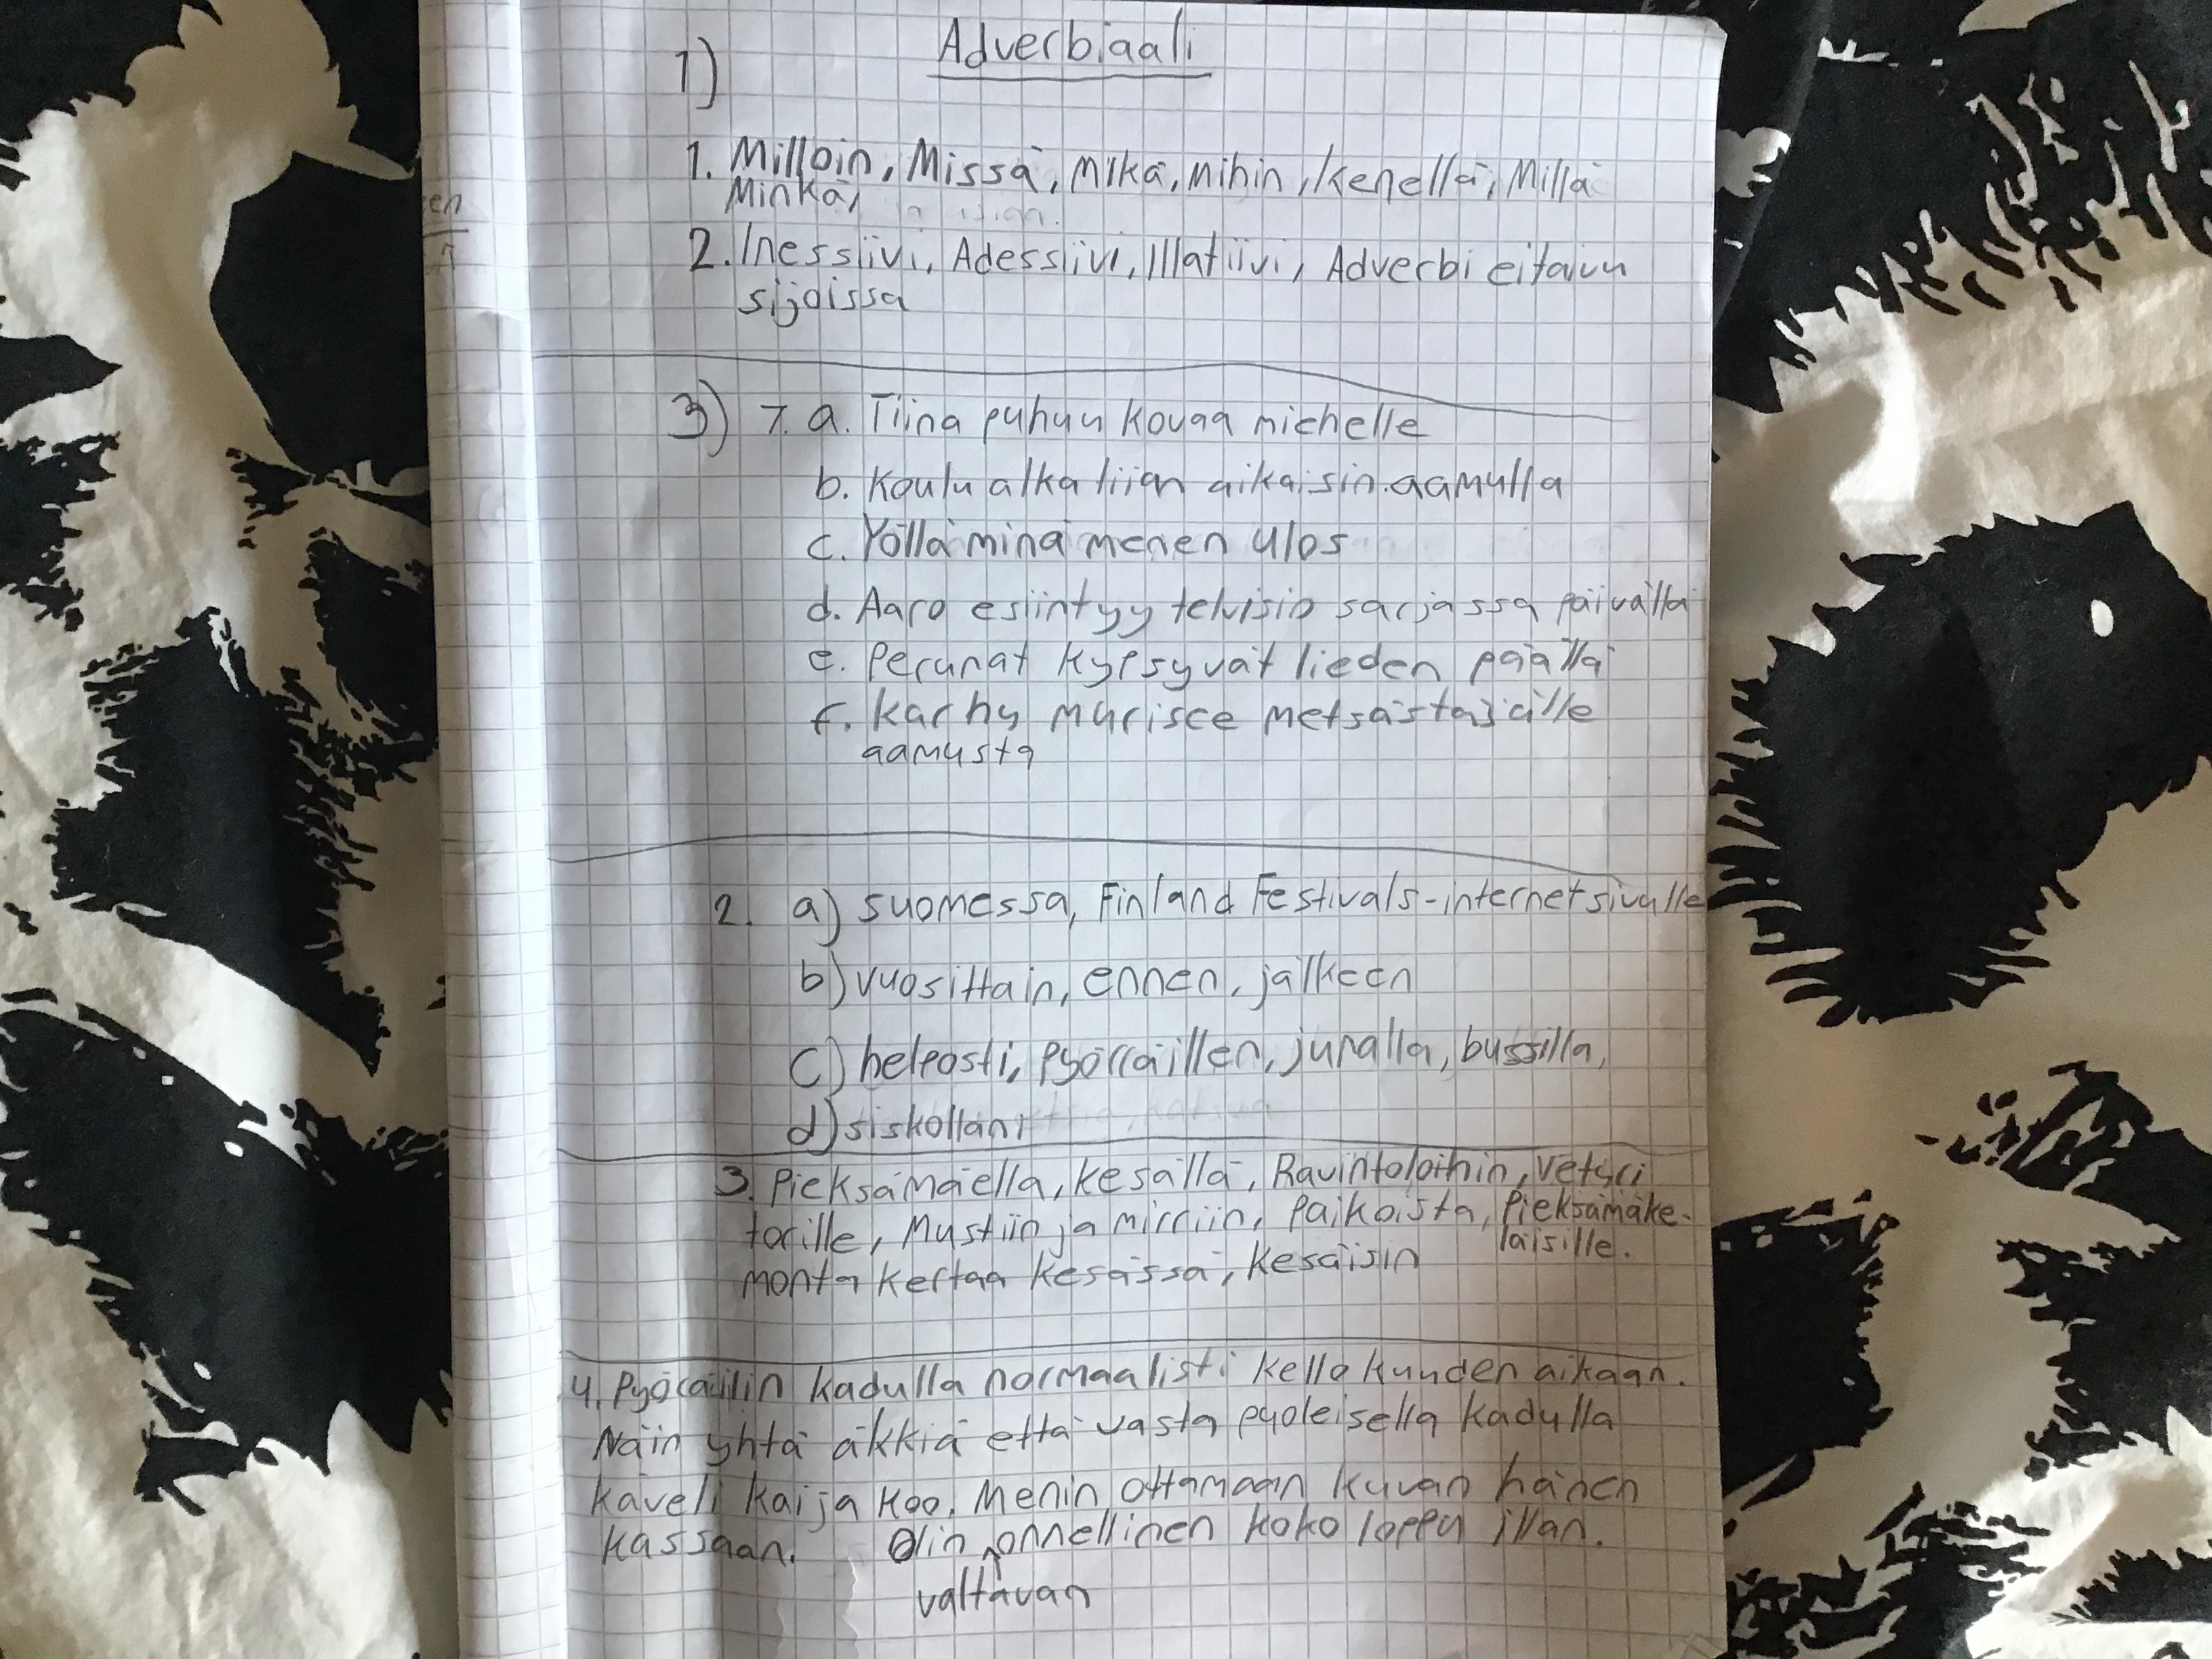 Adverbiaali
1)
1. Milloin, Missä, Mikä, mihin, kenellä, Millä
Minkä,
2. Inessiivi, Adessiivi, Illatiivi, Adverbi ei taivu
sijoissa
3) 7. a. Tiina puhuu kovaa miehelle
b. Koulu alkaa liian aikaisin aamulla
c. Yöllä minä menen ulos
d. Aaro esiintyy telvisio sarjassa päivällä
e. Perunat kypsyvät lieden päällä
f. Karhu murisee metsästäjälle
aamusta
2. a) suomessa, Finland Festivals-internetsivulle
b) vuosittain, ennen, jälkeen
c) helposti, pyörräillen, junalla, bussilla,
d) siskollani
3. Pieksämäellä, kesällä, Ravintoloihin, Veturi
torille, Mustiin ja mirriin, Paikoista, Pieksämäke-
läisille.
monta kertaa kesässä, kesäisin
4. Pyöräilin kadulla normaalisti kello kuuden aikaan.
Näin yhtä äkkiä että vasta puoleisella kadulla
käveli kaija koo. Menin ottamaan kuvan hänen
kassaan. Olin onnellinen koko loppu illan.
valtavan